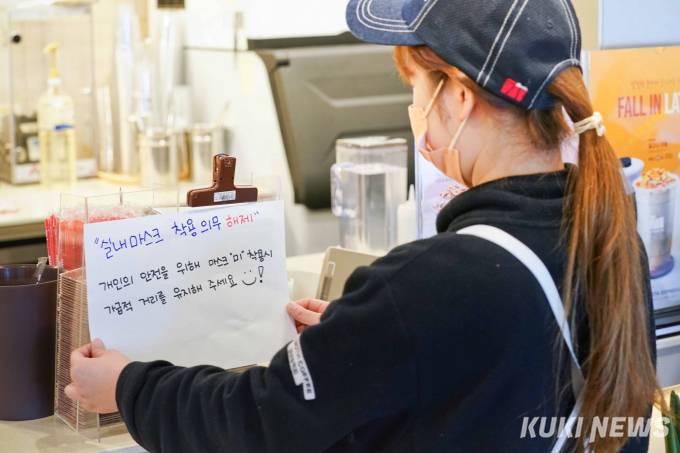 "실내마스크 착용 의무 해제"
개인의 안전을 위해 마스크 '미' 착용시
가급적 거리를 유지해 주세요 !
FALL IN LAT
KUKI NEWS